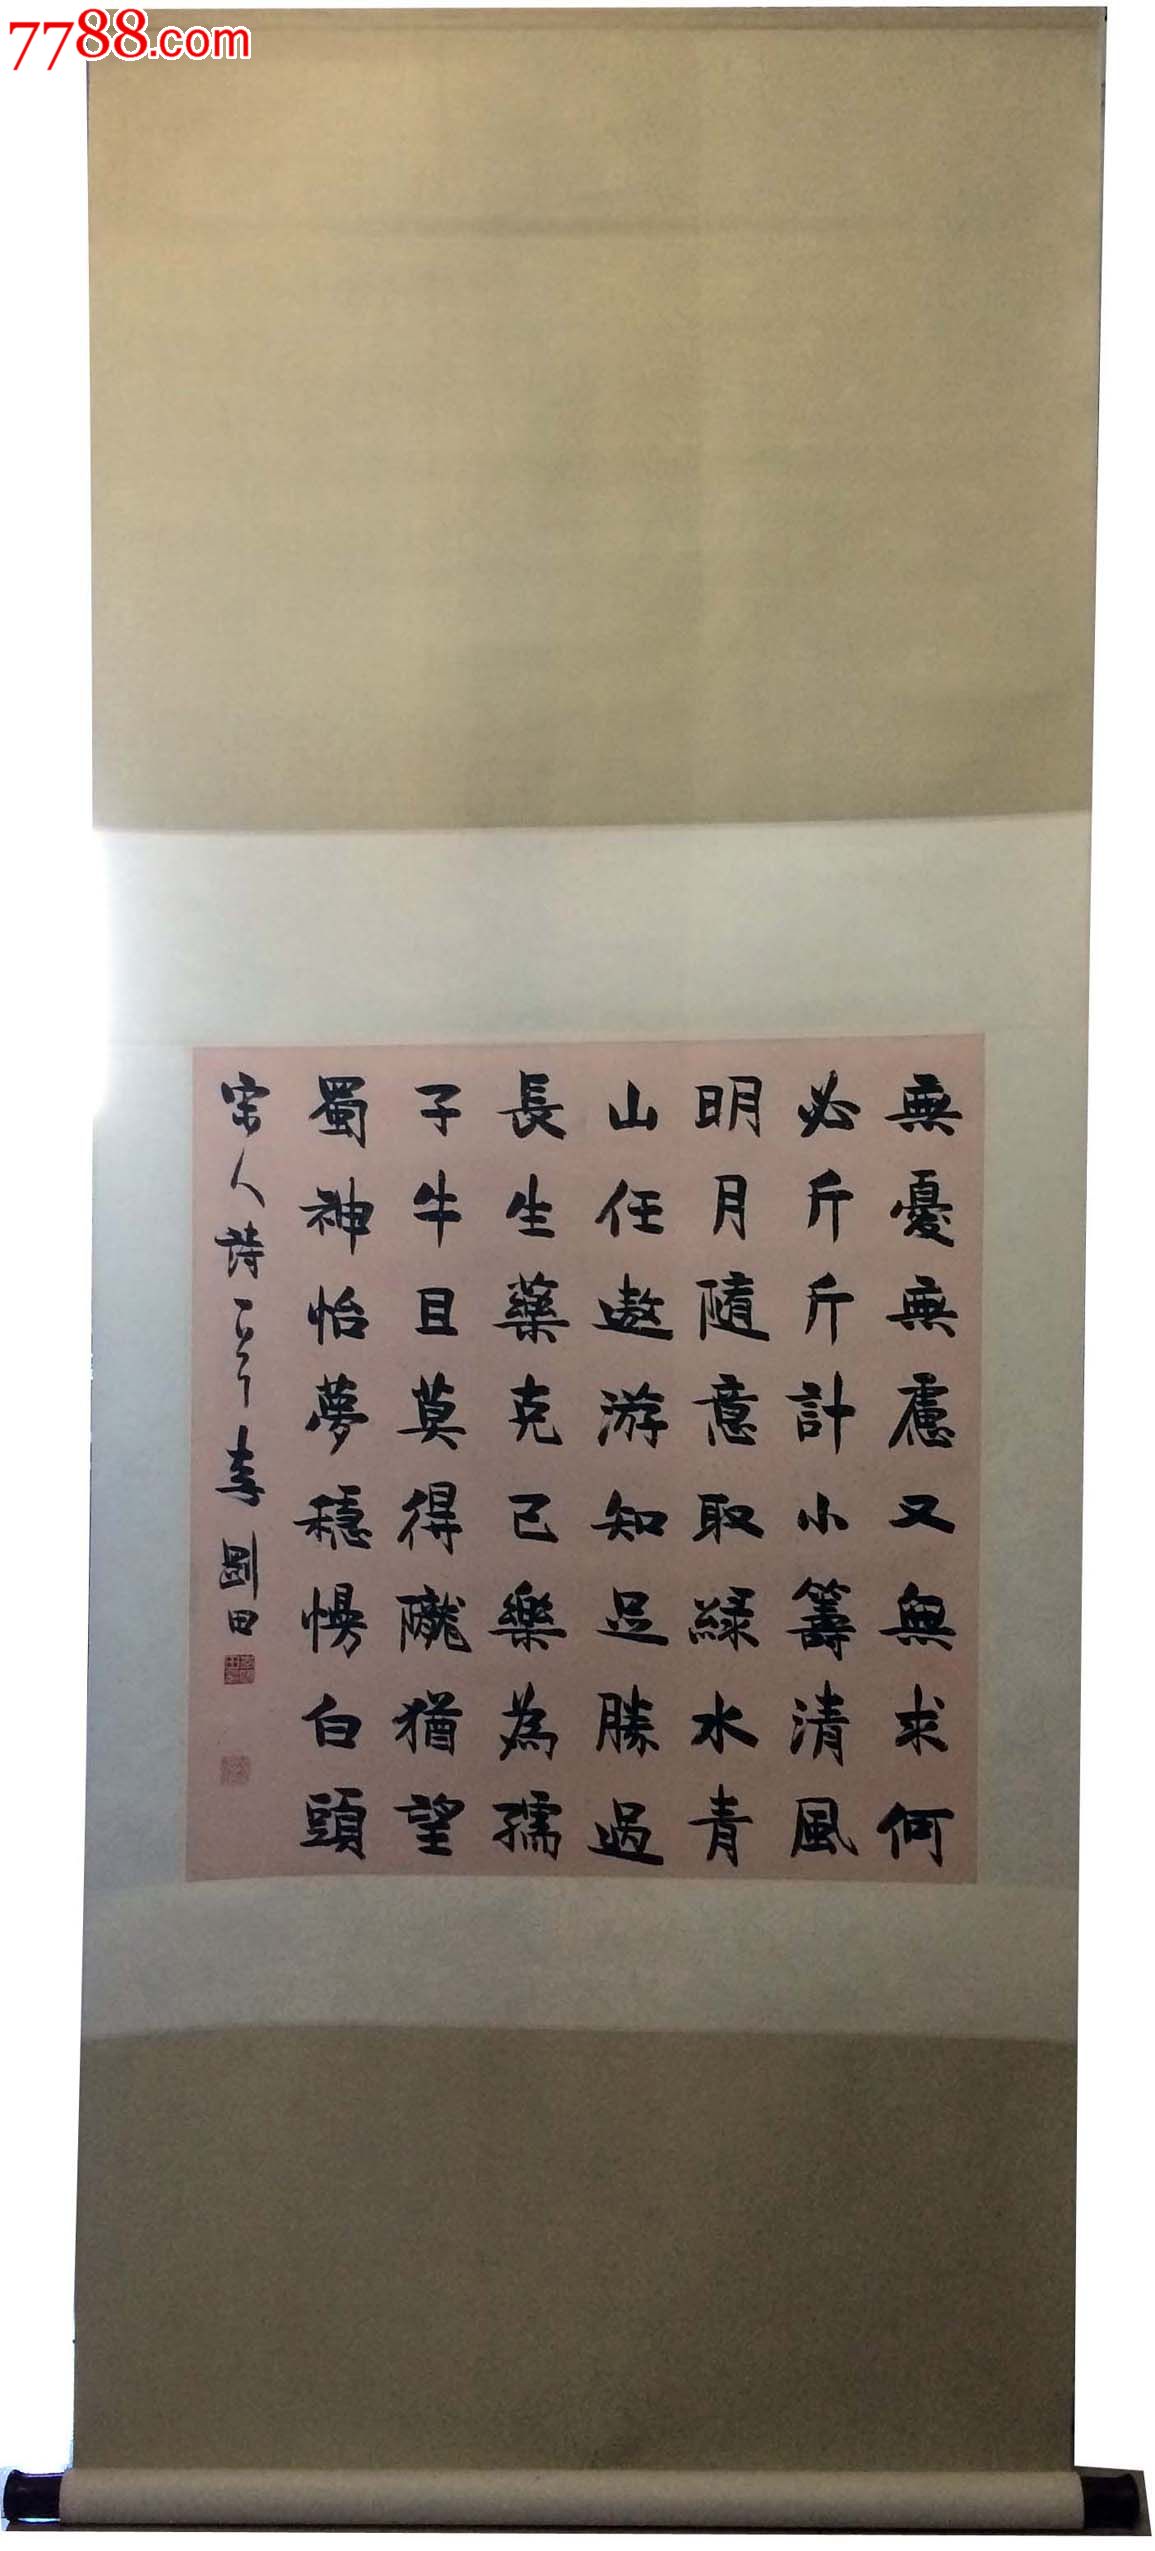 7788.com
無憂無慮又無求何
必斤斤計小籌清風
明月隨意取綠水青
山任遨游知足勝過
長生藥克己樂為孺
子牛且莫得隴猶望
蜀神怡夢穩慢白頭
宋人詩一首李剛田